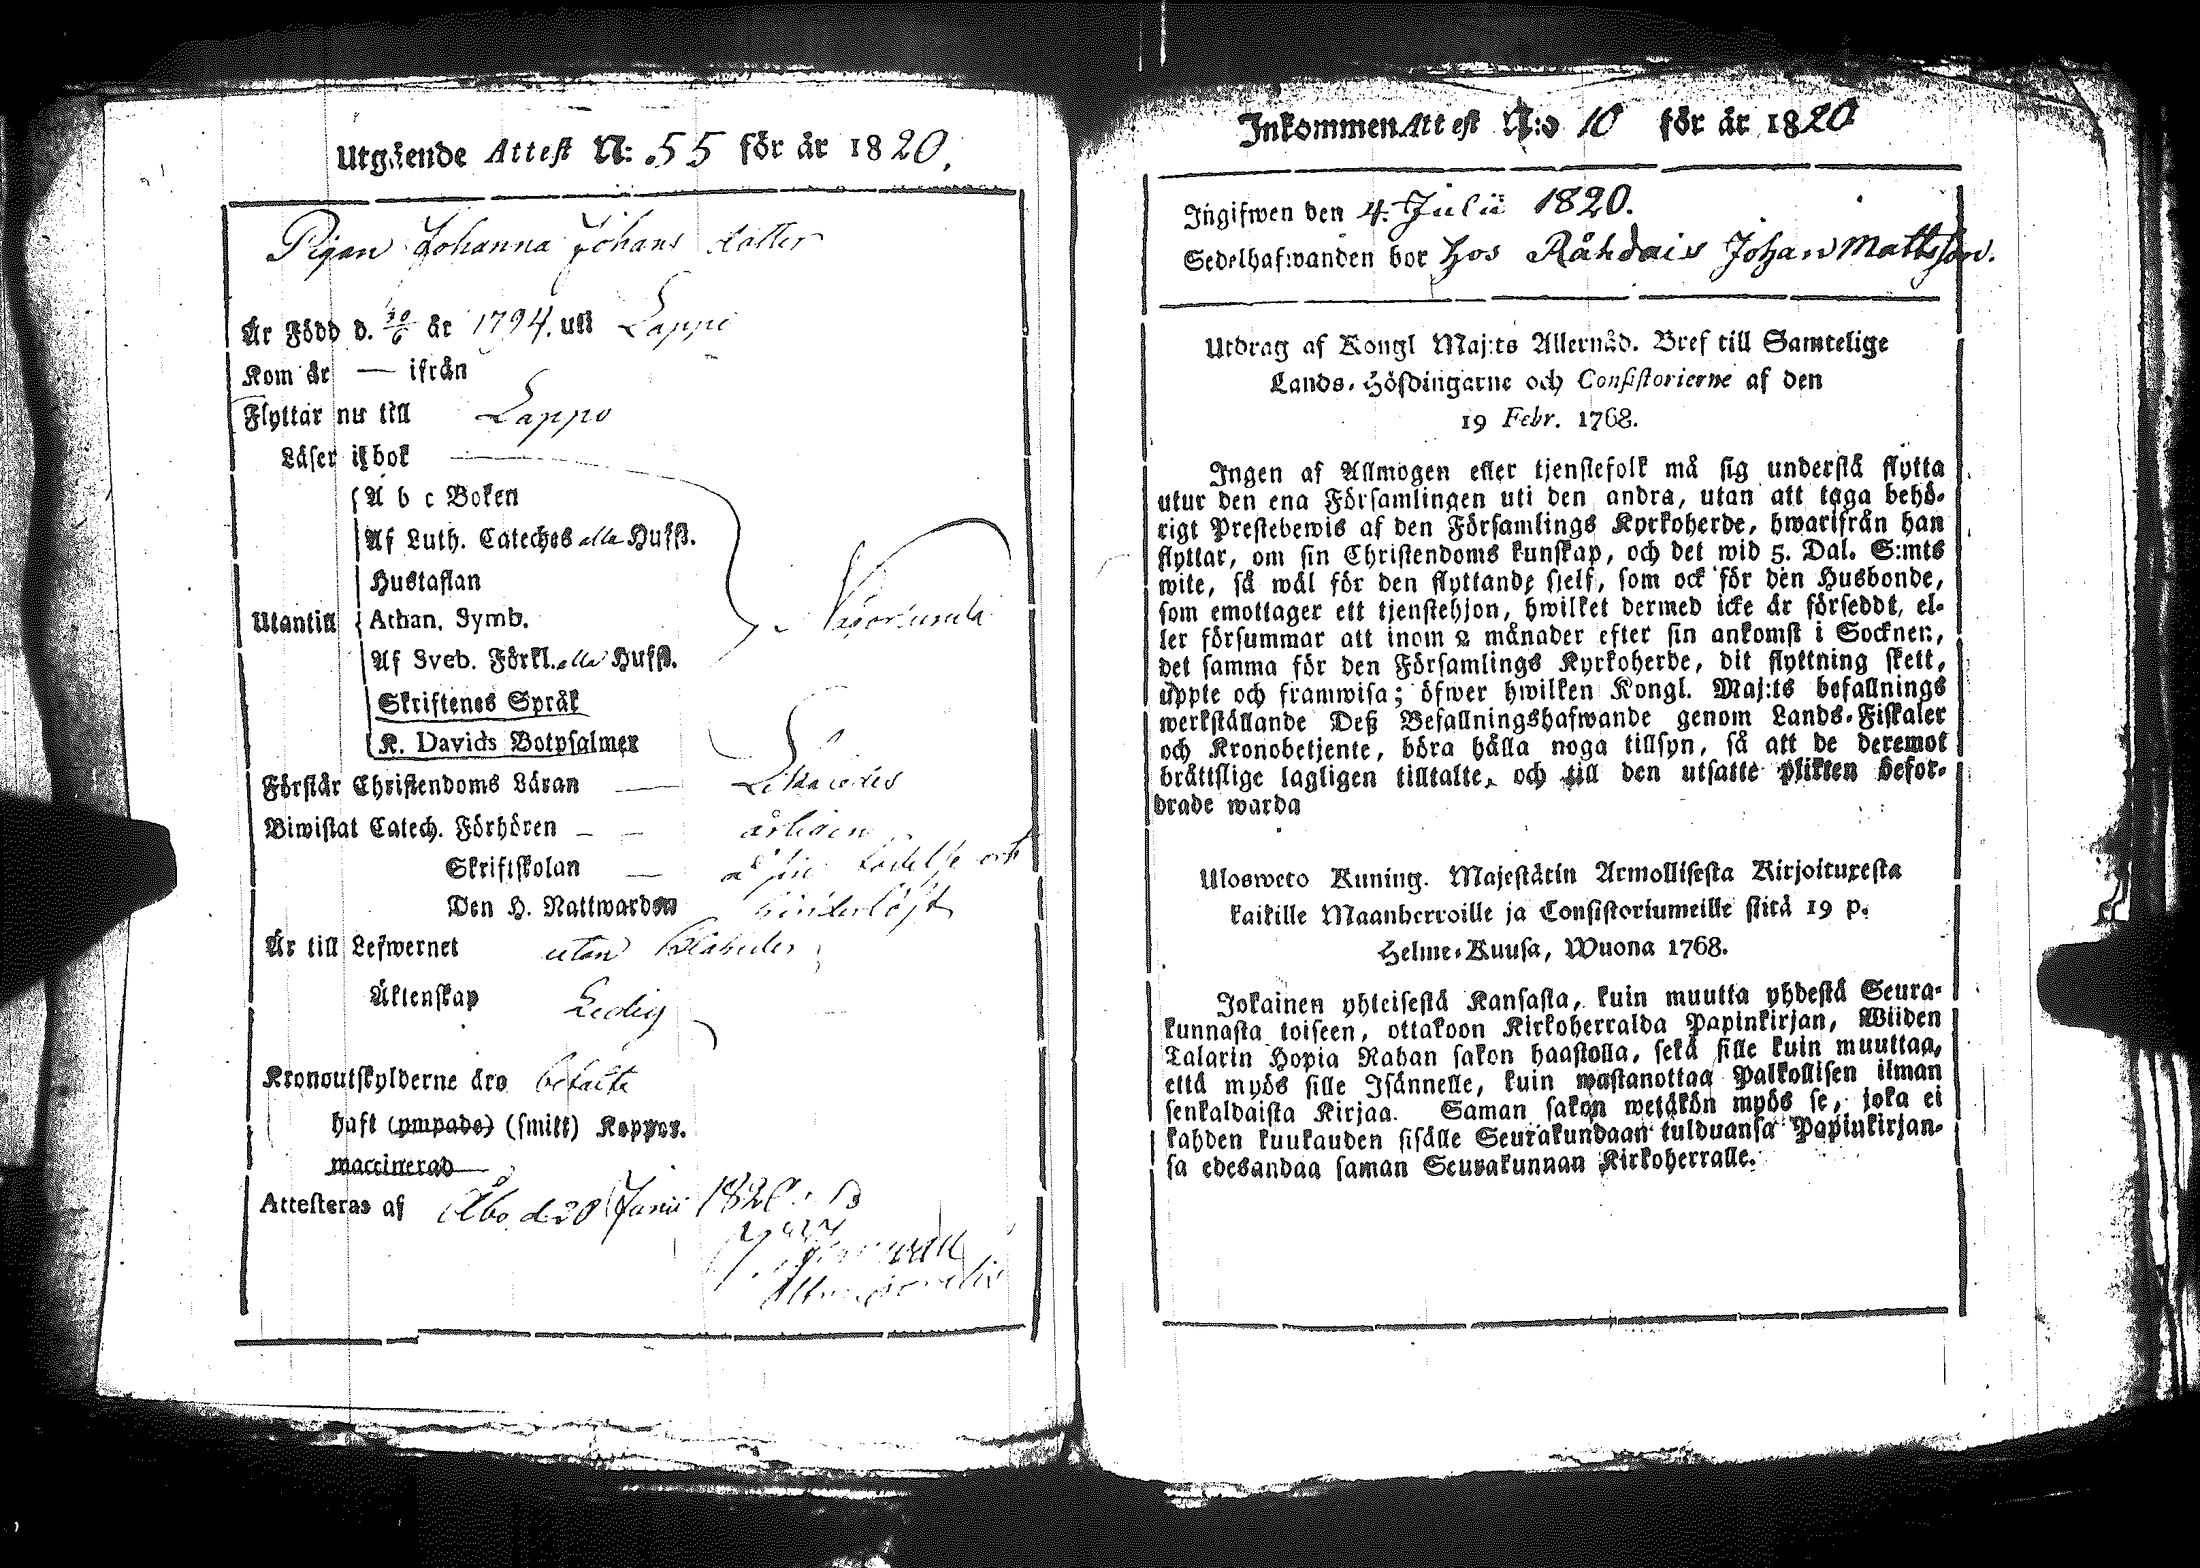 Utgående Attest N: 55 för år 1820.
Pigan Johanna Johans dotter
Är Född d. 30/6 år 1794. uti Lappi
Kom år — ifrån
Flyttar nu till Lappo
Läser i bok
A b c Boken
Af Luth. Cateches alla Hufst.
Hustaflan
Utantill Athan. Symb.
Af Sveb. Förkl. alla Hufst.
Skriftenes Språk
K. Davids Botpsalmer
Förstår Christendoms Läran —
Biwistat Catech. Förhören — — årligen
Skriftskolan —
Den H. Nattwarden hinderlöst
Är till Lefwernet utan
Äktenskap Ledig
Kronoutskylderne äro betalte
haft (ympade) (smitt) Koppor.
waccinerad
Attesteras af Åbo d. 20 Junii 1820.
Inkommen Attest N:o 10 för år 1820
Ingifwen den 4. Julii 1820.
Sedelhafwanden bor hos Råhdais Johan Mattsson.
Utdrag af Kongl Maj:ts Allernåd. Bref till Samtelige
Lands-Höfdingarne och Consistorierne af den
19 Febr. 1768.
Ingen af Allmogen eller tjenstefolk må sig understå flytta
utur den ena Församlingen uti den andra, utan att taga behö-
rigt Prestebewis af den Församlings Kyrkoherde, hwarifrån han
flyttar, om sin Christendoms kunskap, och det wid 5. Dal. S:mts
wite, så wäl för den flyttande sjelf, som ock för den Husbonde,
som emottager ett tjenstehjon, hwilket dermed icke är försedt, el-
ler försummar att inom 2 månader efter sin ankomst i Socknen,
det samma för den Församlings Kyrkoherde, dit flyttning skett,
uppte och framwisa; öfwer hwilken Kongl. Maj:ts befallnings
werkställande Deß Befallningshafwande genom Lands-Fiskaler
och Kronobetjente, böra hålla noga tillsyn, så att de deremot
bråttslige lagligen tilltalte, och till den utsatte plikten befor-
drade warda
Ulosweto Kuning. Majestätin Armollisesta Kirjoituxesta
kaikille Maanherroille ja Consistoriumeille siitä 19 p.
Helme-Kuusa, Wuona 1768.
Jokainen yhteisestä Kansasta, kuin muutta yhdestä Seura-
kunnasta toiseen, ottakoon Kirkoherralda Papinkirjan, Wiiden
Talarin Hopia Rahan sakon haastolla, sekä sille kuin muuttaa,
että myös sille Isännelle, kuin wastanottaa Palkollisen ilman
senkaldaista Kirjaa. Saman sakon wetäkön myös se, joka ei
kahden kuukauden sisälle Seurakundaan tulduansa Papinkirjan-
sa edesandaa saman Seurakunnan Kirkoherralle.